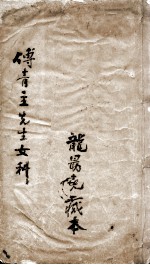 傅青主先生女科
龍昜堯藏本